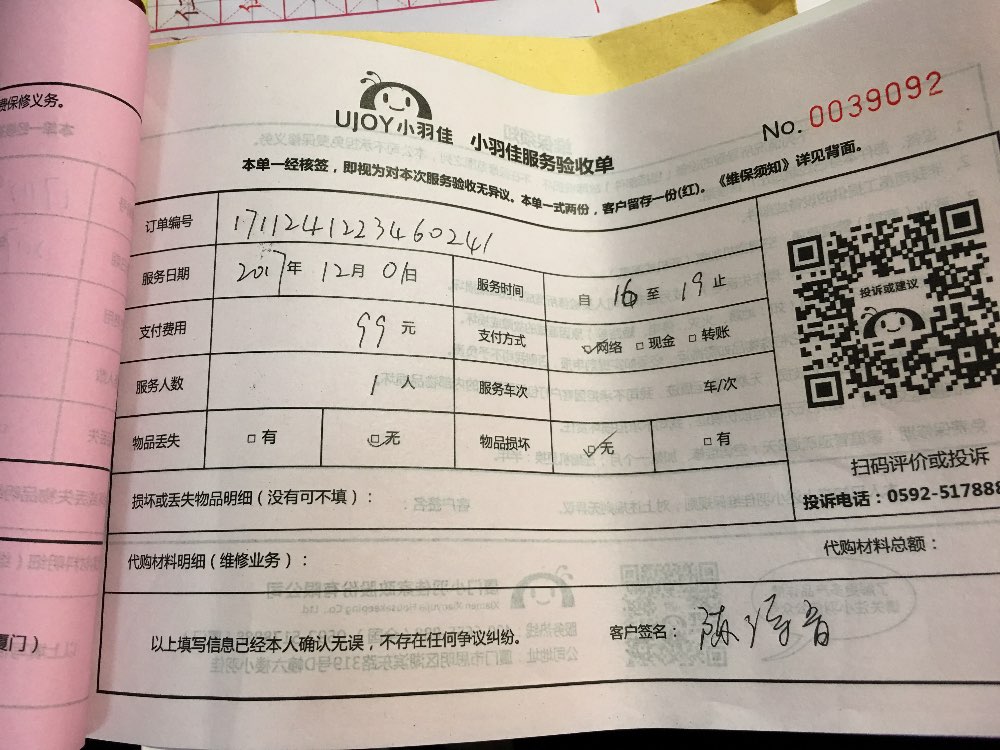 费保修义务。
UJOY小羽佳 小羽佳服务验收单
No. 0039092
本单一经核签，即视为对本次服务验收无异议。本单一式两份，客户留存一份(红)。《维保须知》详见背面。
订单编号 1711241223460241
服务日期 2017年 12月 01日 服务时间 自 16 至 19 止
支付费用 99 元 支付方式 ☑网络 □现金 □转账
服务人数 1 人 服务车次 车/次
物品丢失 □有 ☑无 物品损坏 ☑无 □有
投诉或建议
扫码评价或投诉
投诉电话：0592-517888
损坏或丢失物品明细（没有可不填）：
代购材料明细（维修业务）： 代购材料总额：
厦门）
以上填写信息已经本人确认无误，不存在任何争议纠纷。 客户签名：陈